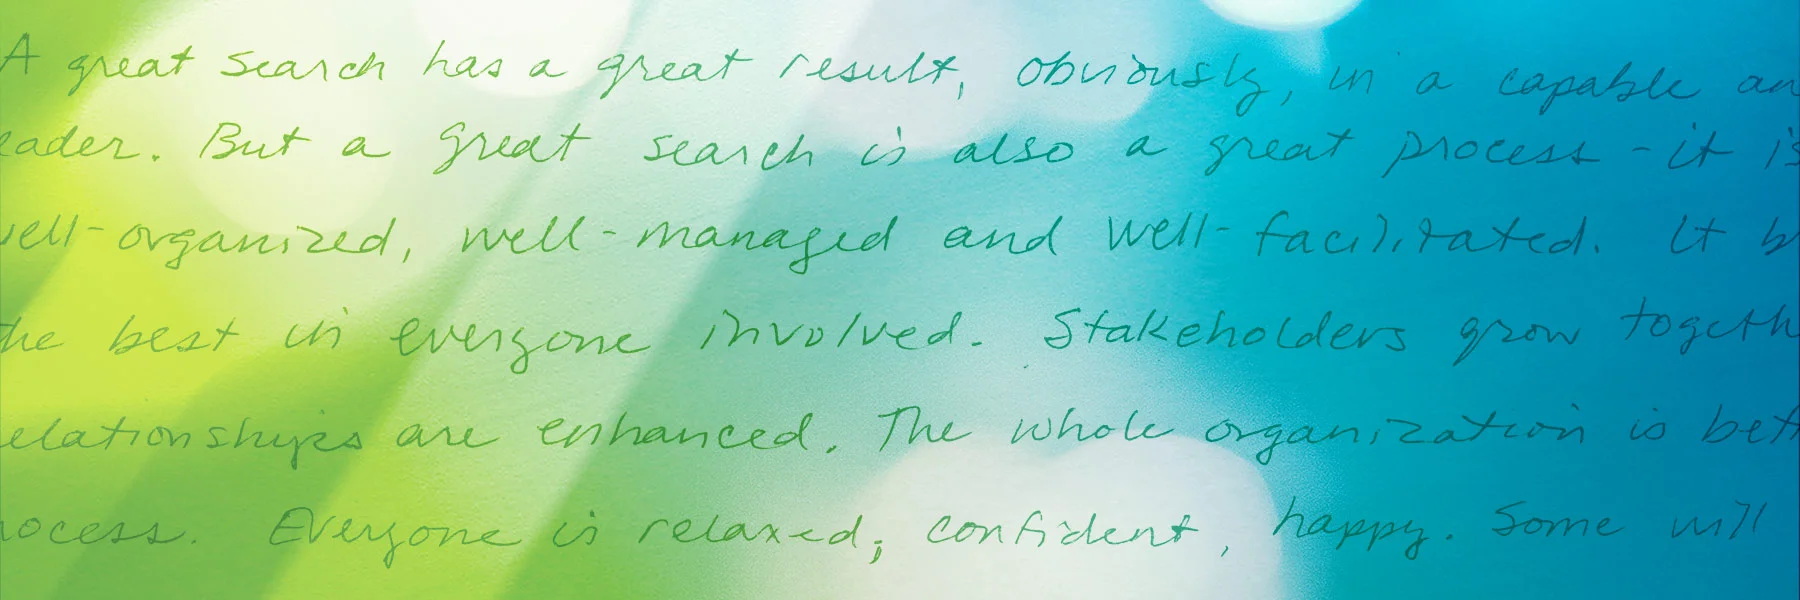 A great search has a great result, obviously, in a capable an
eader. But a great search is also a great process - it is
well-organized, well-managed and well-facilitated. It b
the best in everyone involved. Stakeholders grow togeth
elationships are enhanced. The whole organization is bett
rocess. Everyone is relaxed, confident, happy. Some will